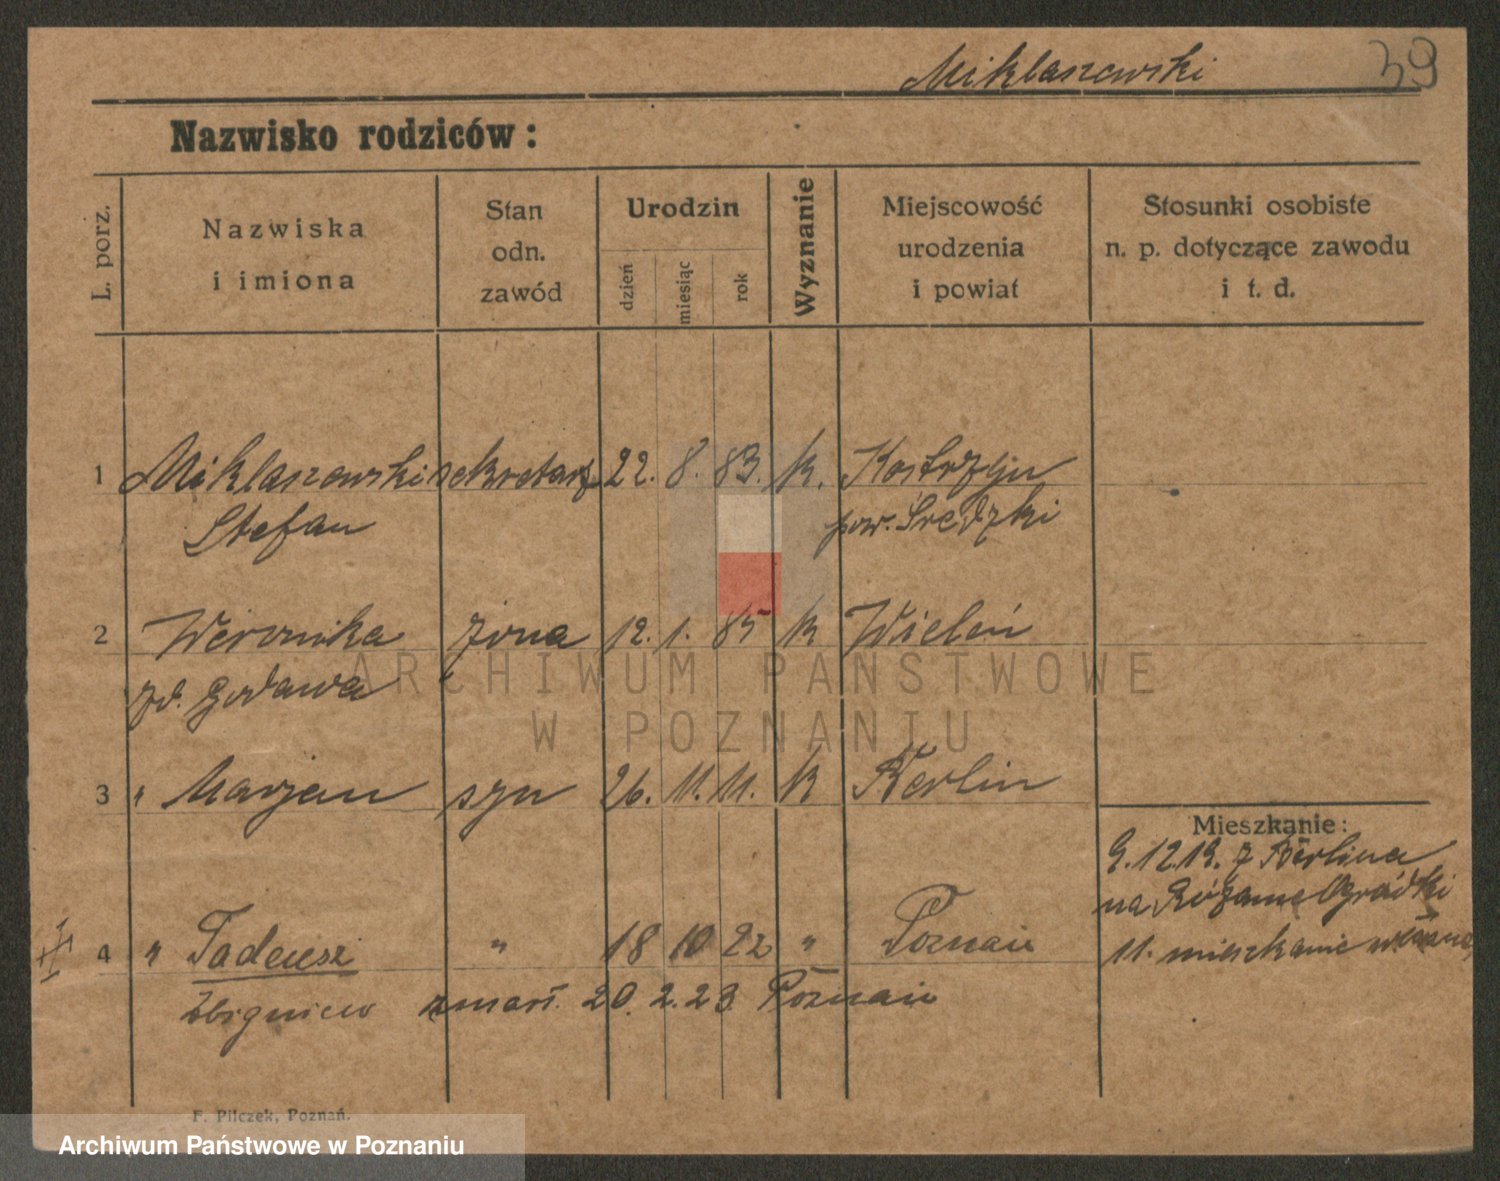 Miklaszewski 39
Nazwisko rodziców:
L. porz.
Nazwiska
i imiona
Stan
odn.
zawód
Urodzin
dzień
miesiąc
rok
Wyznanie
Miejscowość
urodzenia
i powiat
Stosunki osobiste
n. p. dotyczące zawodu
i t. d.
1 Miklaszewski sekretarz 22. 8. 83. k. Kostrzyn
Stefan pow. Średzki
2 Weronika żona 12. 1. 85 k Wieleń
zd. Godawa
3 " Marjan syn 26. 11. 11. k Berlin
Mieszkanie:
9.12.19. z Berlina
na Ogródki
11. mieszkanie
4 " Tadeusz " 18 10 22 " Poznań
Zbigniew zmarł. 20. 2. 23 Poznań
F. Pilczek, Poznań.
ARCHIWUM PAŃSTWOWE
W POZNANIU
Archiwum Państwowe w Poznaniu